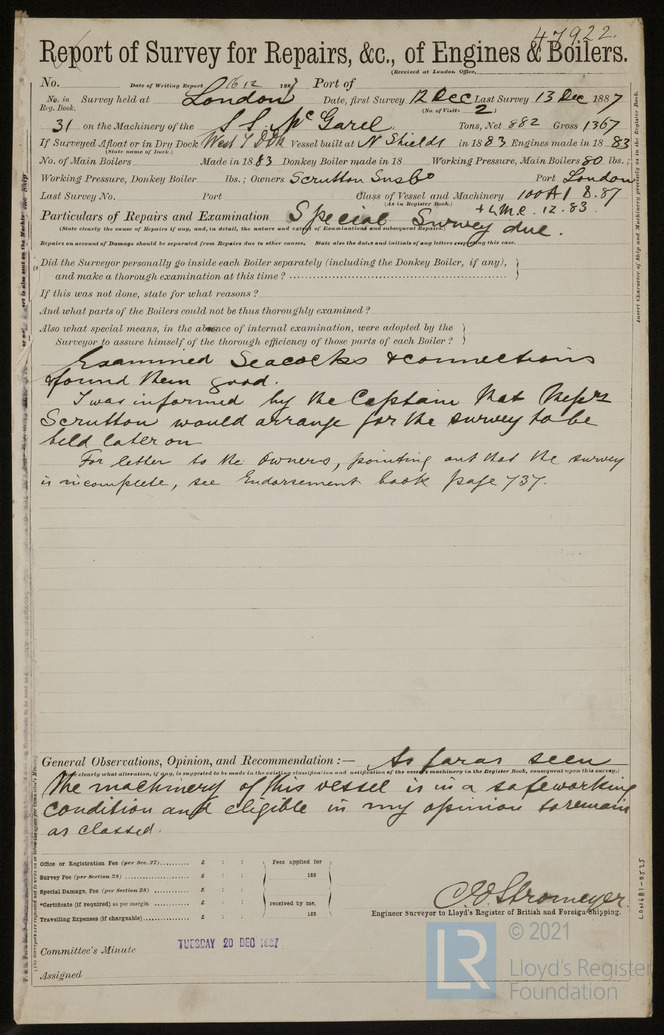 47922.
Report of Survey for Repairs, &c., of Engines & Boilers.
(Received at London Office,
No. Date of Writing Report 16 12 1887 Port of
No. in Reg. Book. Survey held at London Date, first Survey 12 Dec Last Survey 13 Dec 1887
(No. of Visits 2)
31 on the Machinery of the S.S. McGarel Tons, Net 882 Gross 1367
If Surveyed Afloat or in Dry Dock West I Dk Vessel built at N Shields in 1883 Engines made in 1883
(State name of Dock.)
No. of Main Boilers Made in 1883 Donkey Boiler made in 18 Working Pressure, Main Boilers 80 lbs.;
Working Pressure, Donkey Boiler lbs.; Owners Scrutton Sons & Co Port London
Last Survey No. Port Class of Vessel and Machinery 100A1 8.87
(As in Register Book.) + LMC. 12.83
Particulars of Repairs and Examination Special Survey due.
(State clearly the cause of Repairs if any, and, in detail, the nature and extent of Examinations and subsequent Repairs.)
Repairs on account of Damage should be separated from Repairs due to other causes. State also the dates and initials of any letters respecting this case.
Did the Surveyor personally go inside each Boiler separately (including the Donkey Boiler, if any),
and make a thorough examination at this time?
If this was not done, state for what reasons?
And what parts of the Boilers could not be thus thoroughly examined?
Also what special means, in the absence of internal examination, were adopted by the
Surveyor to assure himself of the thorough efficiency of those parts of each Boiler?
Examined Seacocks & connections
& found them good.
I was informed by the Captain that Messrs
Scrutton would arrange for the survey to be
held later on
For letter to the Owners, pointing out that the survey
is incomplete, see Endorsement book page 737.
General Observations, Opinion, and Recommendation:— As far as seen
(State clearly what alteration, if any, is suggested to be made in the existing classification and notification of the vessel's machinery in the Register Book, consequent upon this survey.)
the machinery of this vessel is in a safe working
condition and eligible in my opinion to remain
as classed.
Office or Registration Fee (per Sec. 27) £ : : Fees applied for
Survey Fee (per Section 28) £ : : 188
Special Damage, Fee (per Section 28) £ : :
*Certificate (if required) as per margin £ : : received by me,
Travelling Expenses (if chargeable) £ : : 188
C.E. Stromeyer
Engineer Surveyor to Lloyd's Register of British and Foreign Shipping.
Committee's Minute TUESDAY 20 DEC 1887
Assigned
Insert Character of Ship and Machinery precisely as in the Register Book.
LON681-0525
LR
© 2021
Lloyd's Register
Foundation